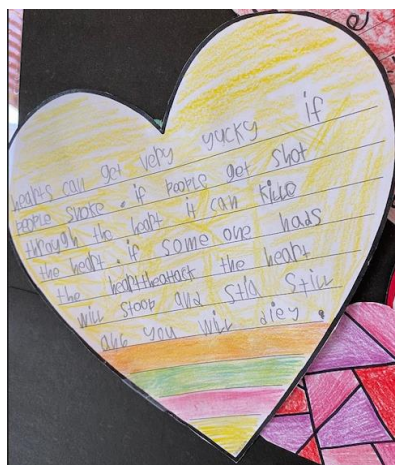 hearts can get very yucky if
people smoke . if people get shot
through the heart it can kille
the heart . if some one hads
the hearttheattact the heart
will stoop and sta still
ane you will diey .